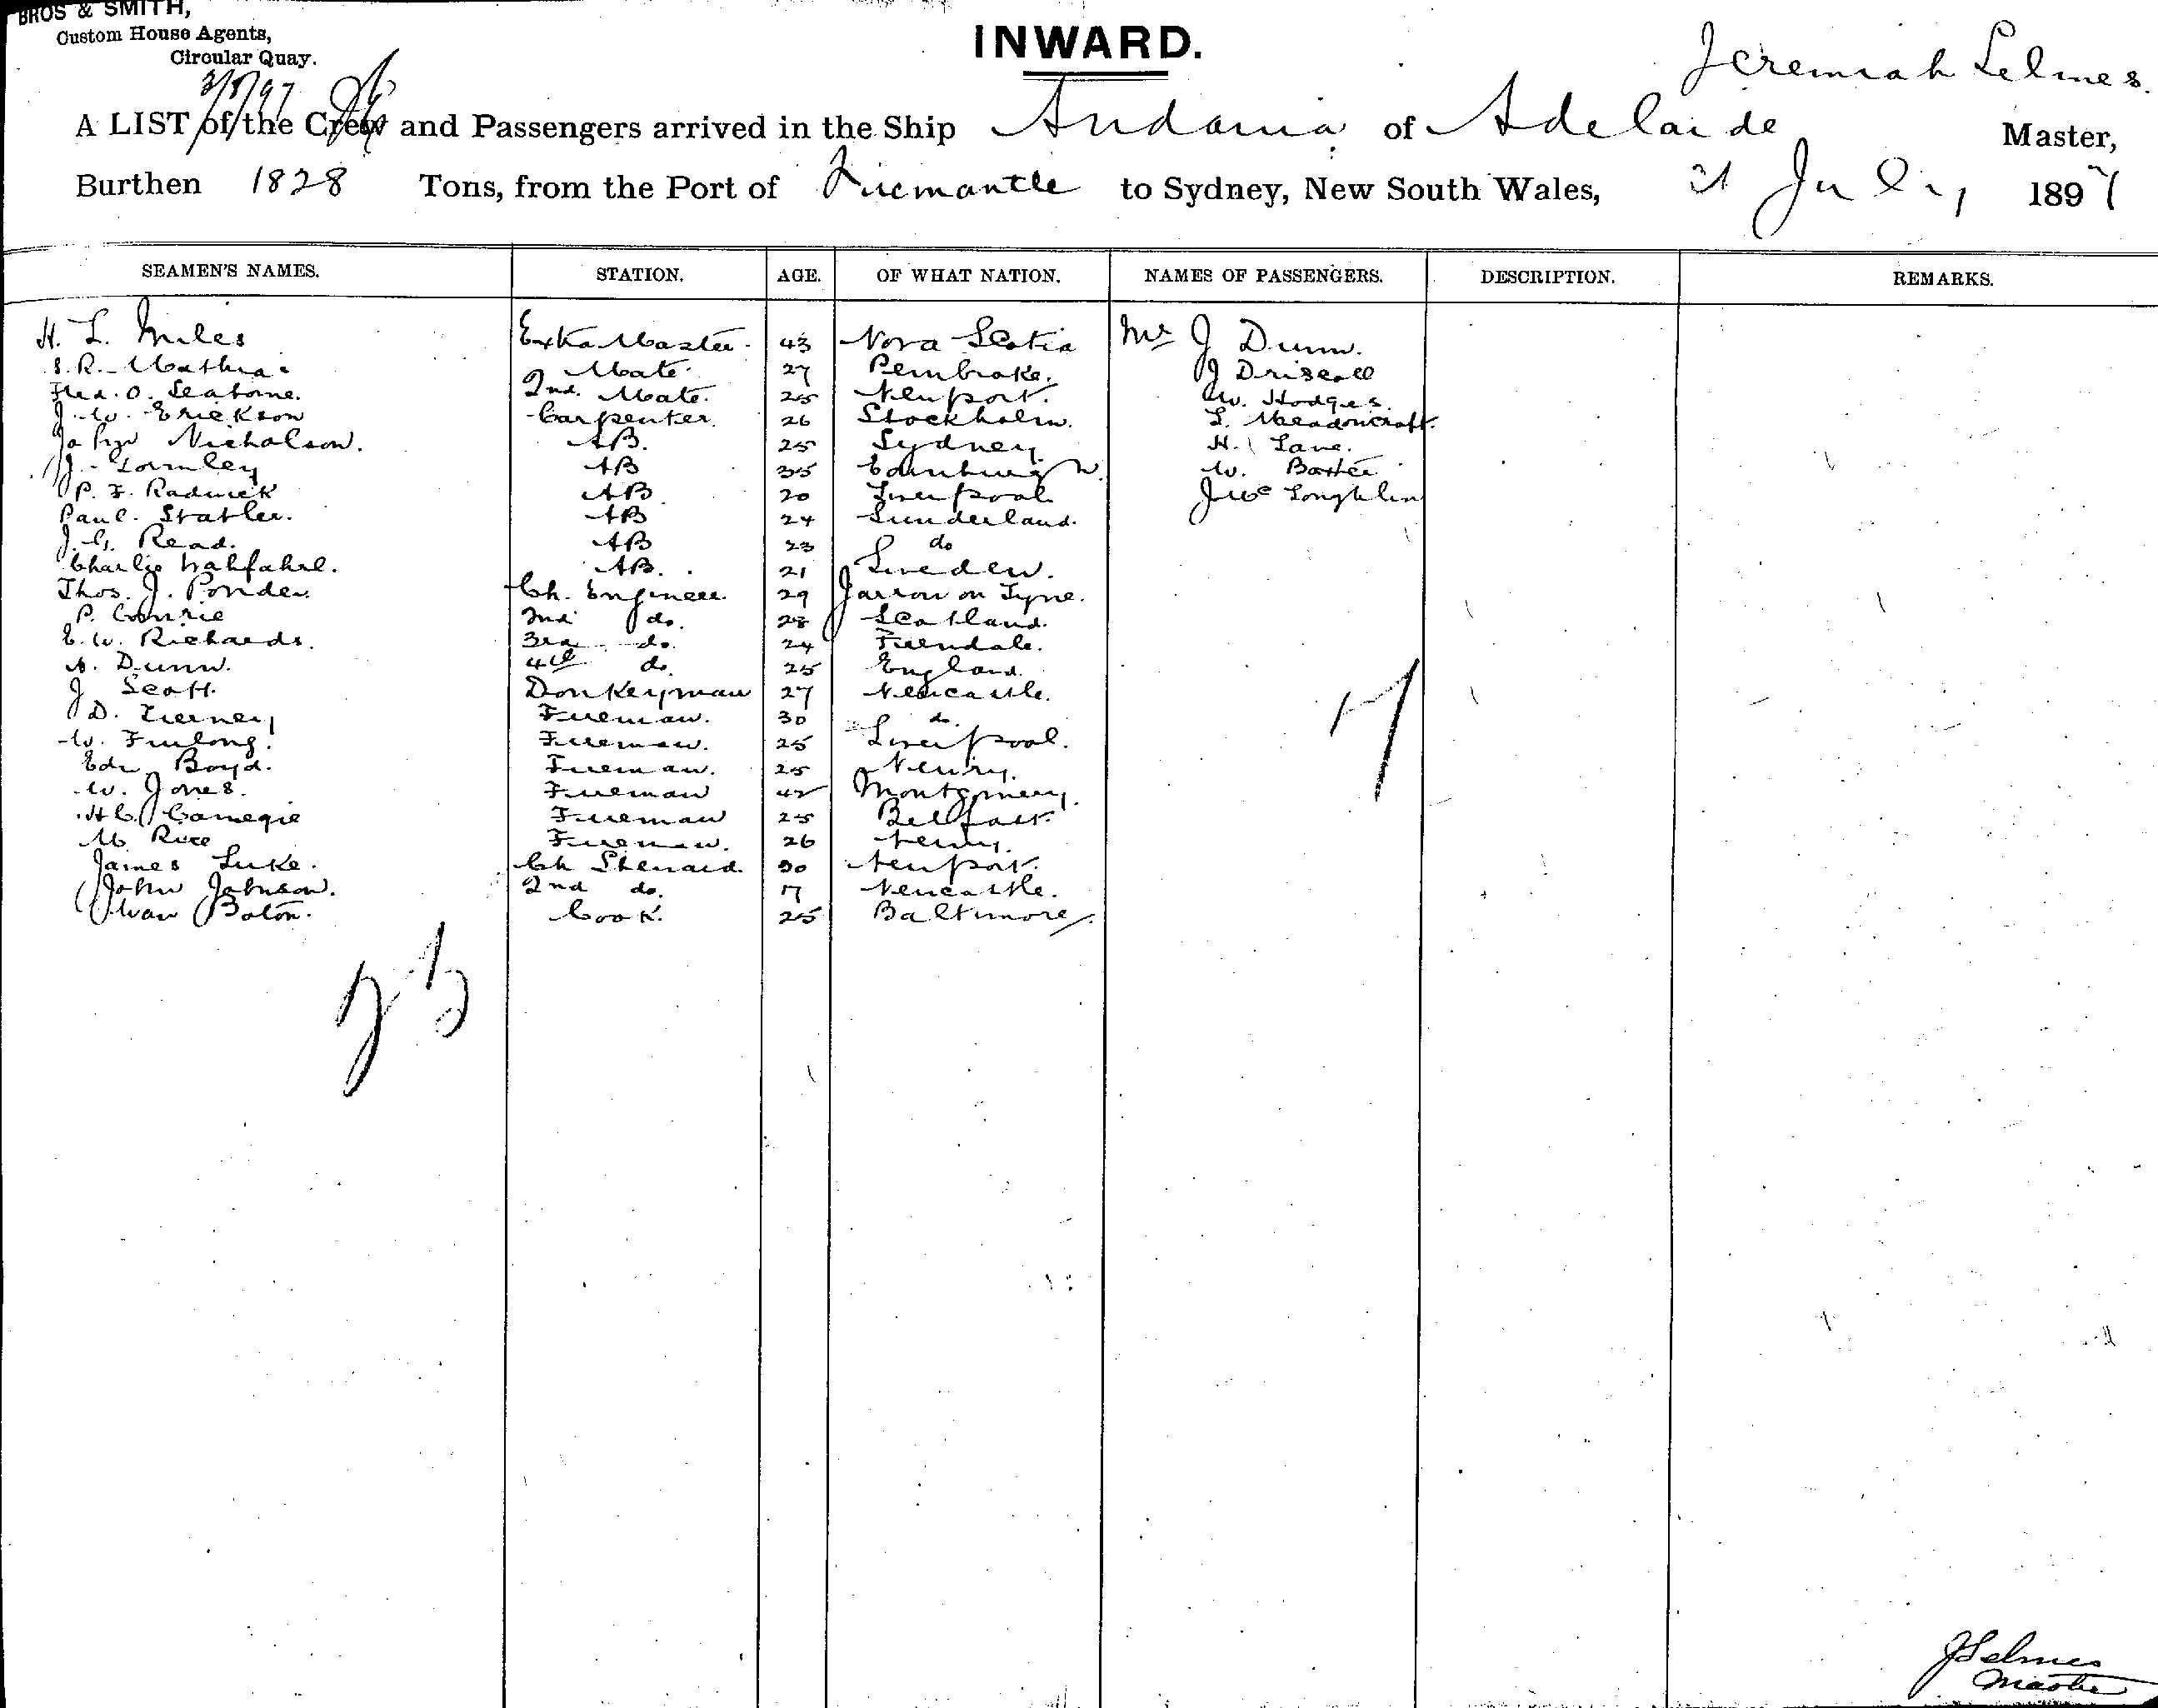 BROS & SMITH,
Custom House Agents,
Circular Quay.
3/8/97
INWARD.
Jeremiah Selmes
A LIST of the Crew and Passengers arrived in the Ship Andania of Adelaide Master,
Burthen 1828 Tons, from the Port of Fremantle to Sydney, New South Wales, 31 July 1897
SEAMEN'S NAMES. STATION. AGE. OF WHAT NATION. NAMES OF PASSENGERS. DESCRIPTION. REMARKS.
H. L. Miles Extra Master 43 Nova Scotia Mr J Dunn.
S. R. Mate 27 Pembroke. J Driscoll
Fred. O. Seaborne. 2nd. Mate. 25 Newport. W. Hodges.
J. W. Erickson Carpenter. 26 Stockholm. L. Meadowcroft.
John Nicholson. AB. 25 Sydney. H. Lane.
J. Gormley AB 35 Edinburgh. W. Baxter
P. F. Radwick AB 20 Liverpool J McLoughlin
Paul. Statler. AB 24 Sunderland.
J. G. Read. AB 23 do
Charlie AB. 21 Sweden.
Thos. J. Ponder. Ch. Engineer 29 Jarrow on Tyne.
P. Comrie 2nd do. 28 Scotland.
E. W. Richards. 3rd do. 24 Ferndale.
A. Dunn. 4th do. 25 England.
J Scott. Donkeyman 27 Newcastle.
D. Tierney Fireman. 30 do.
W. Furlong. Fireman. 25 Liverpool.
Edw Boyd. Fireman. 25 Newry.
W. Jones. Fireman 42 Montgomery.
H C. Carnegie Fireman 25 Belfast.
M Rice Fireman. 26 Newry.
James Luke. Ch Steward 30 Newport.
John Johnson. 2nd do. 17 Newcastle.
Evan Bolon. Cook. 25 Baltimore.
7
25
J Selmes
Master